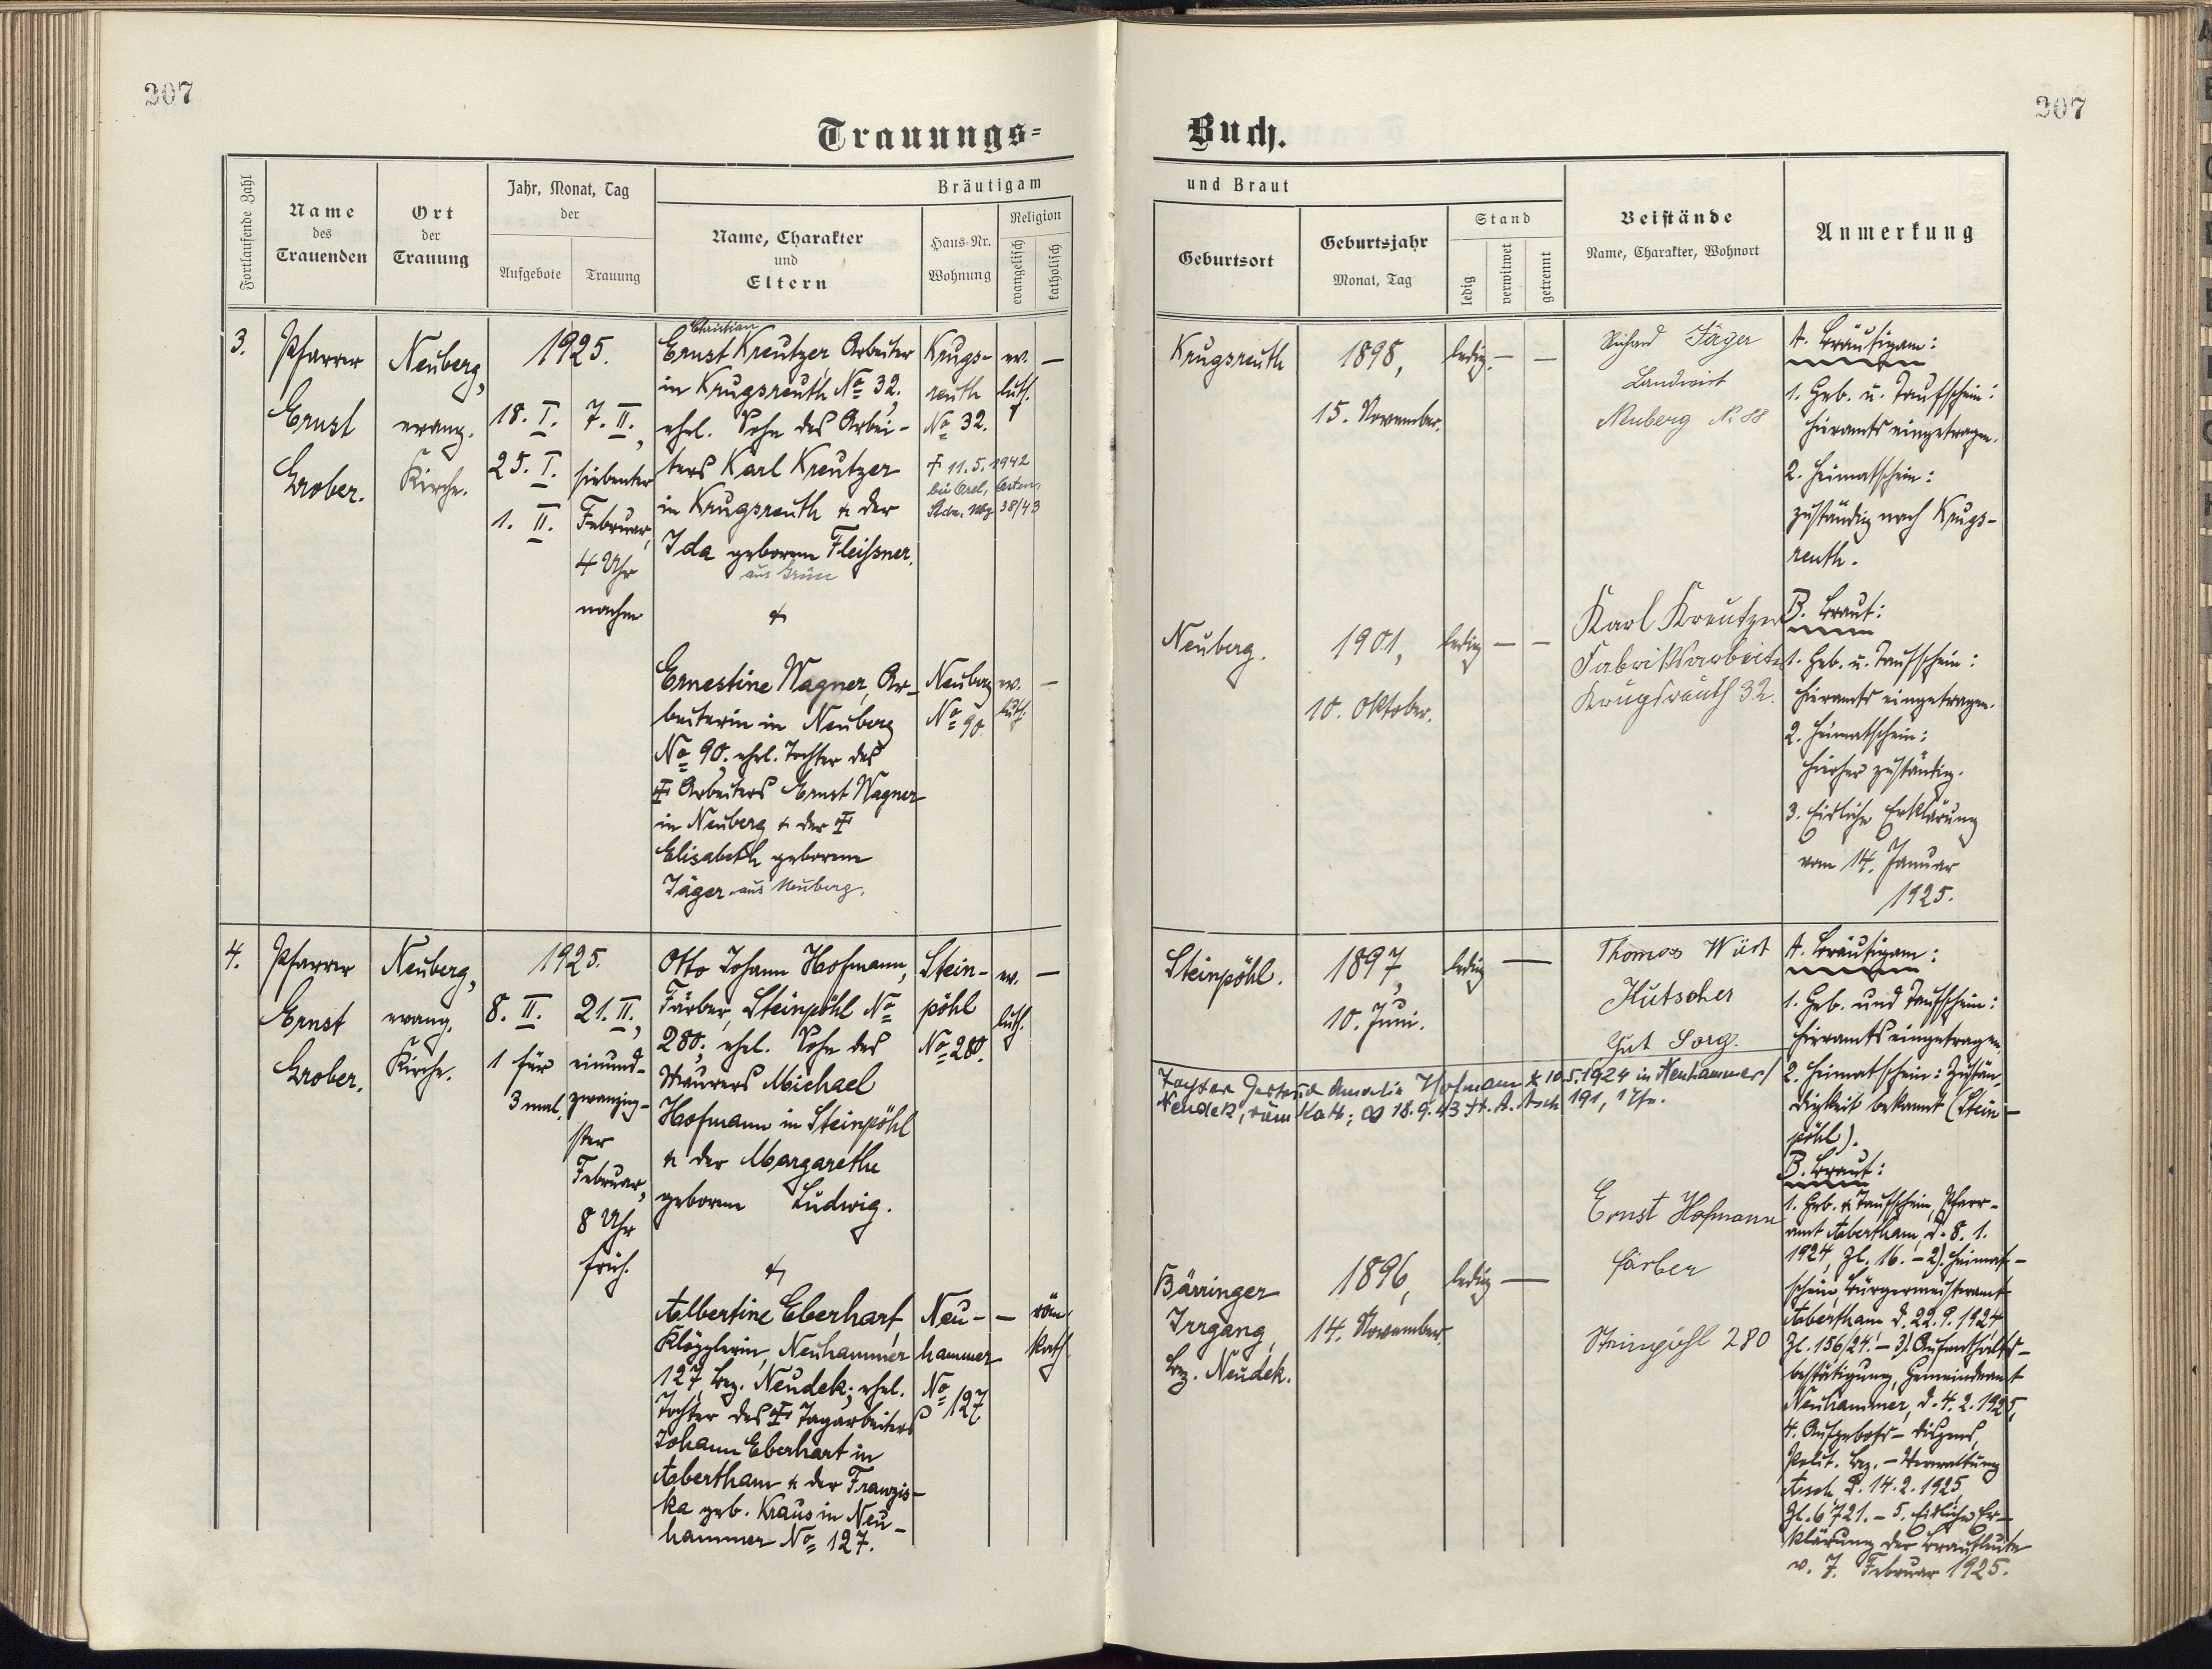 207
207
Trauungs=
Buch.
Fortlaufende Zahl
Name
des
Trauenden
Ort
der
Trauung
Jahr, Monat, Tag
der
Aufgebote
Trauung
Bräutigam
Name, Charakter
und
Eltern
Haus-Nr.
Wohnung
Religion
evangelisch
katholisch
und Braut
Geburtsort
Geburtsjahr
Monat, Tag
Stand
ledig
verwitwet
getrennt
Beistände
Name, Charakter, Wohnort
Anmerkung
3.
Pfarrer
Ernst
Grober.
Neuberg,
evang.
Kirche.
1925.
18. I.
25. I.
1. II.
7. II.,
siebenter
Februar,
4 Uhr
nachm
Christian
Ernst Kreutzer, Arbeiter
in Krugsreuth No 32,
ehel. Sohn des Arbei-
ters Karl Kreutzer
in Krugsreuth & der
Ida geborene Fleißner.
aus Grün
&
Krugs-
reuth
No 32.
† 11. 5. 1942
38/43
ev.
luth.
—
Ernestine Wagner, Ar-
beiterin in Neuberg
No 90, ehel. Tochter des
† Arbeiters Ernst Wagner
in Neuberg & der †
Elisabeth geborene
Jäger. aus Neuberg.
Neuberg
No 90.
ev.
luth.
—
Krugsreuth
1898,
15. November.
ledig. — —
Richard Jäger
Landwirt
Neuberg N. 88
A. Bräutigam:
1. Geb. u. Taufschein:
hieramts eingetragen.
2. Heimatschein:
zuständig nach Krugs-
reuth.
Neuberg.
1901,
10. Oktober.
ledig — —
Karl Kreutzer
Fabriksarbeiter
Krugsreuth 32.
B. Braut:
1. Geb. u. Taufschein:
hieramts eingetragen.
2. Heimatschein:
hierher zuständig.
3. Eidliche Erklärung
vom 14. Januar
1925.
4.
Pfarrer
Ernst
Grober.
Neuberg,
evang.
Kirche.
1925.
8. II.
1 für
3 mal.
21. II.,
einund-
zwanzig-
ster
Februar,
8 Uhr
früh.
Otto Johann Hofmann,
Färber, Steinpöhl No
280; ehel. Sohn des
Maurers Michael
Hofmann in Steinpöhl
& der Margarethe
geborene Ludwig.
&
Stein-
pöhl
No 280.
ev.
luth.
—
Albertine Eberhart,
Klöpplerin, Neuhammer
127, Bez. Neudek; ehel.
Tochter des † Tagarbeiters
Johann Eberhart in
Abertham & der Franzis-
ka geb. Kraus in Neu-
hammer No 127.
Neu-
hammer
No 127
— röm.
kath.
Steinpöhl.
1897,
10. Juni.
ledig —
Thomas Wüst
Kutscher
Gut Sorg.
Tochter Gertrud Amalie Hofmann * 10.5.1924 in Neuhammer/
Neudek, röm. Kath; ∞ 18.9.43 St. A. Asch 191,
A. Bräutigam:
1. Geb. und Taufschein:
hieramts eingetragen.
2. Heimatschein: Zustän-
digkeit bekannt (Stein-
pöhl).
Bärringer
Irrgang,
Bez. Neudek.
1896,
14. November.
ledig —
Ernst Hofmann
Färber
Steinpöhl 280
B. Braut:
1. Geb. & Taufschein, Pfarr-
amt Abertham, d. 8. 1.
1924, Zl. 16. - 2). Heimat-
schein, Bürgermeisteramt
Abertham d. 22. 9. 1924
Zl. 156/24. - 3). Aufenthalts-
bestätigung, Gemeindeamt
Neuhammer, d. 4. 2. 1925,
4. Aufgebots-Dispens,
Polit. Bez. - Verwaltung
Asch d. 14. 2. 1925
Zl. 6721. - 5. Eidliche Er-
klärung der Brautleute
v. 7. Februar 1925.